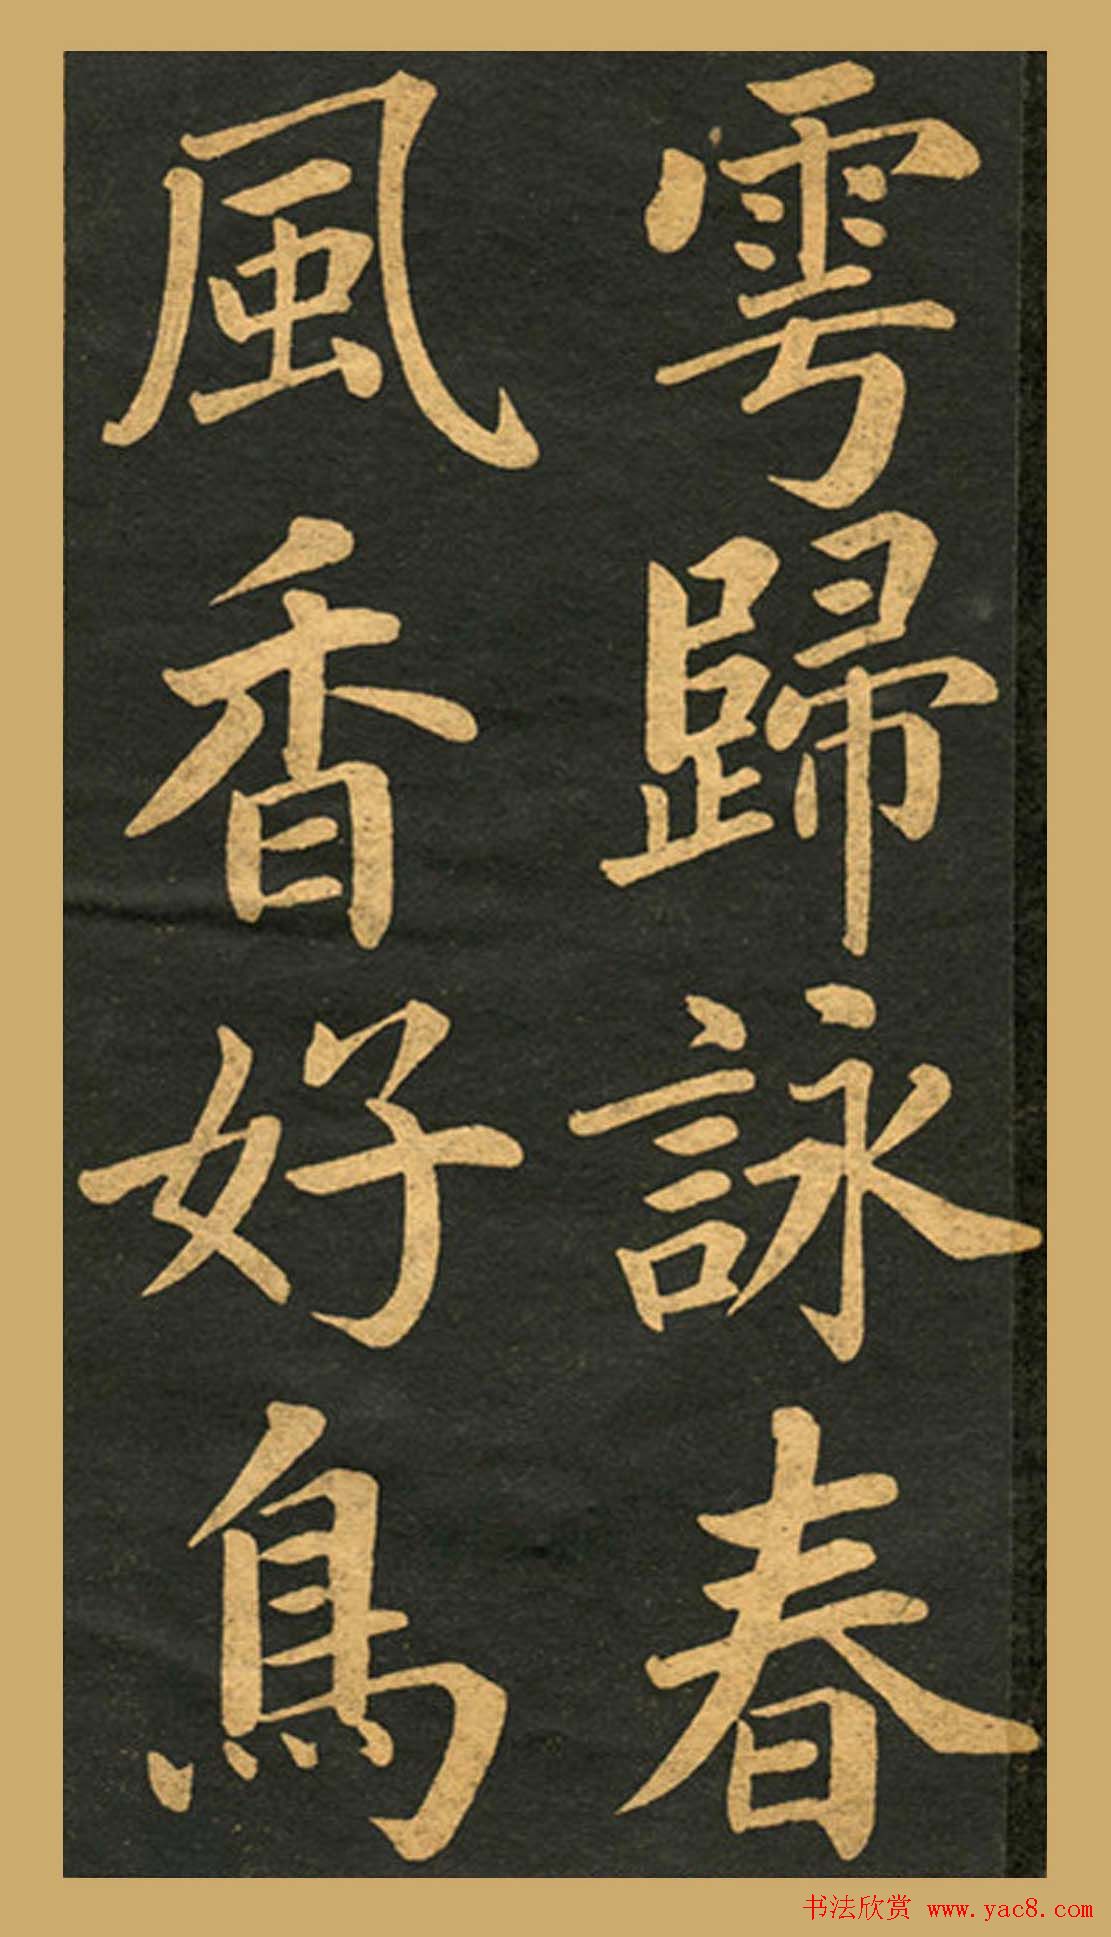 雩歸詠春
風香好鳥
书法欣赏 www.yac8.com